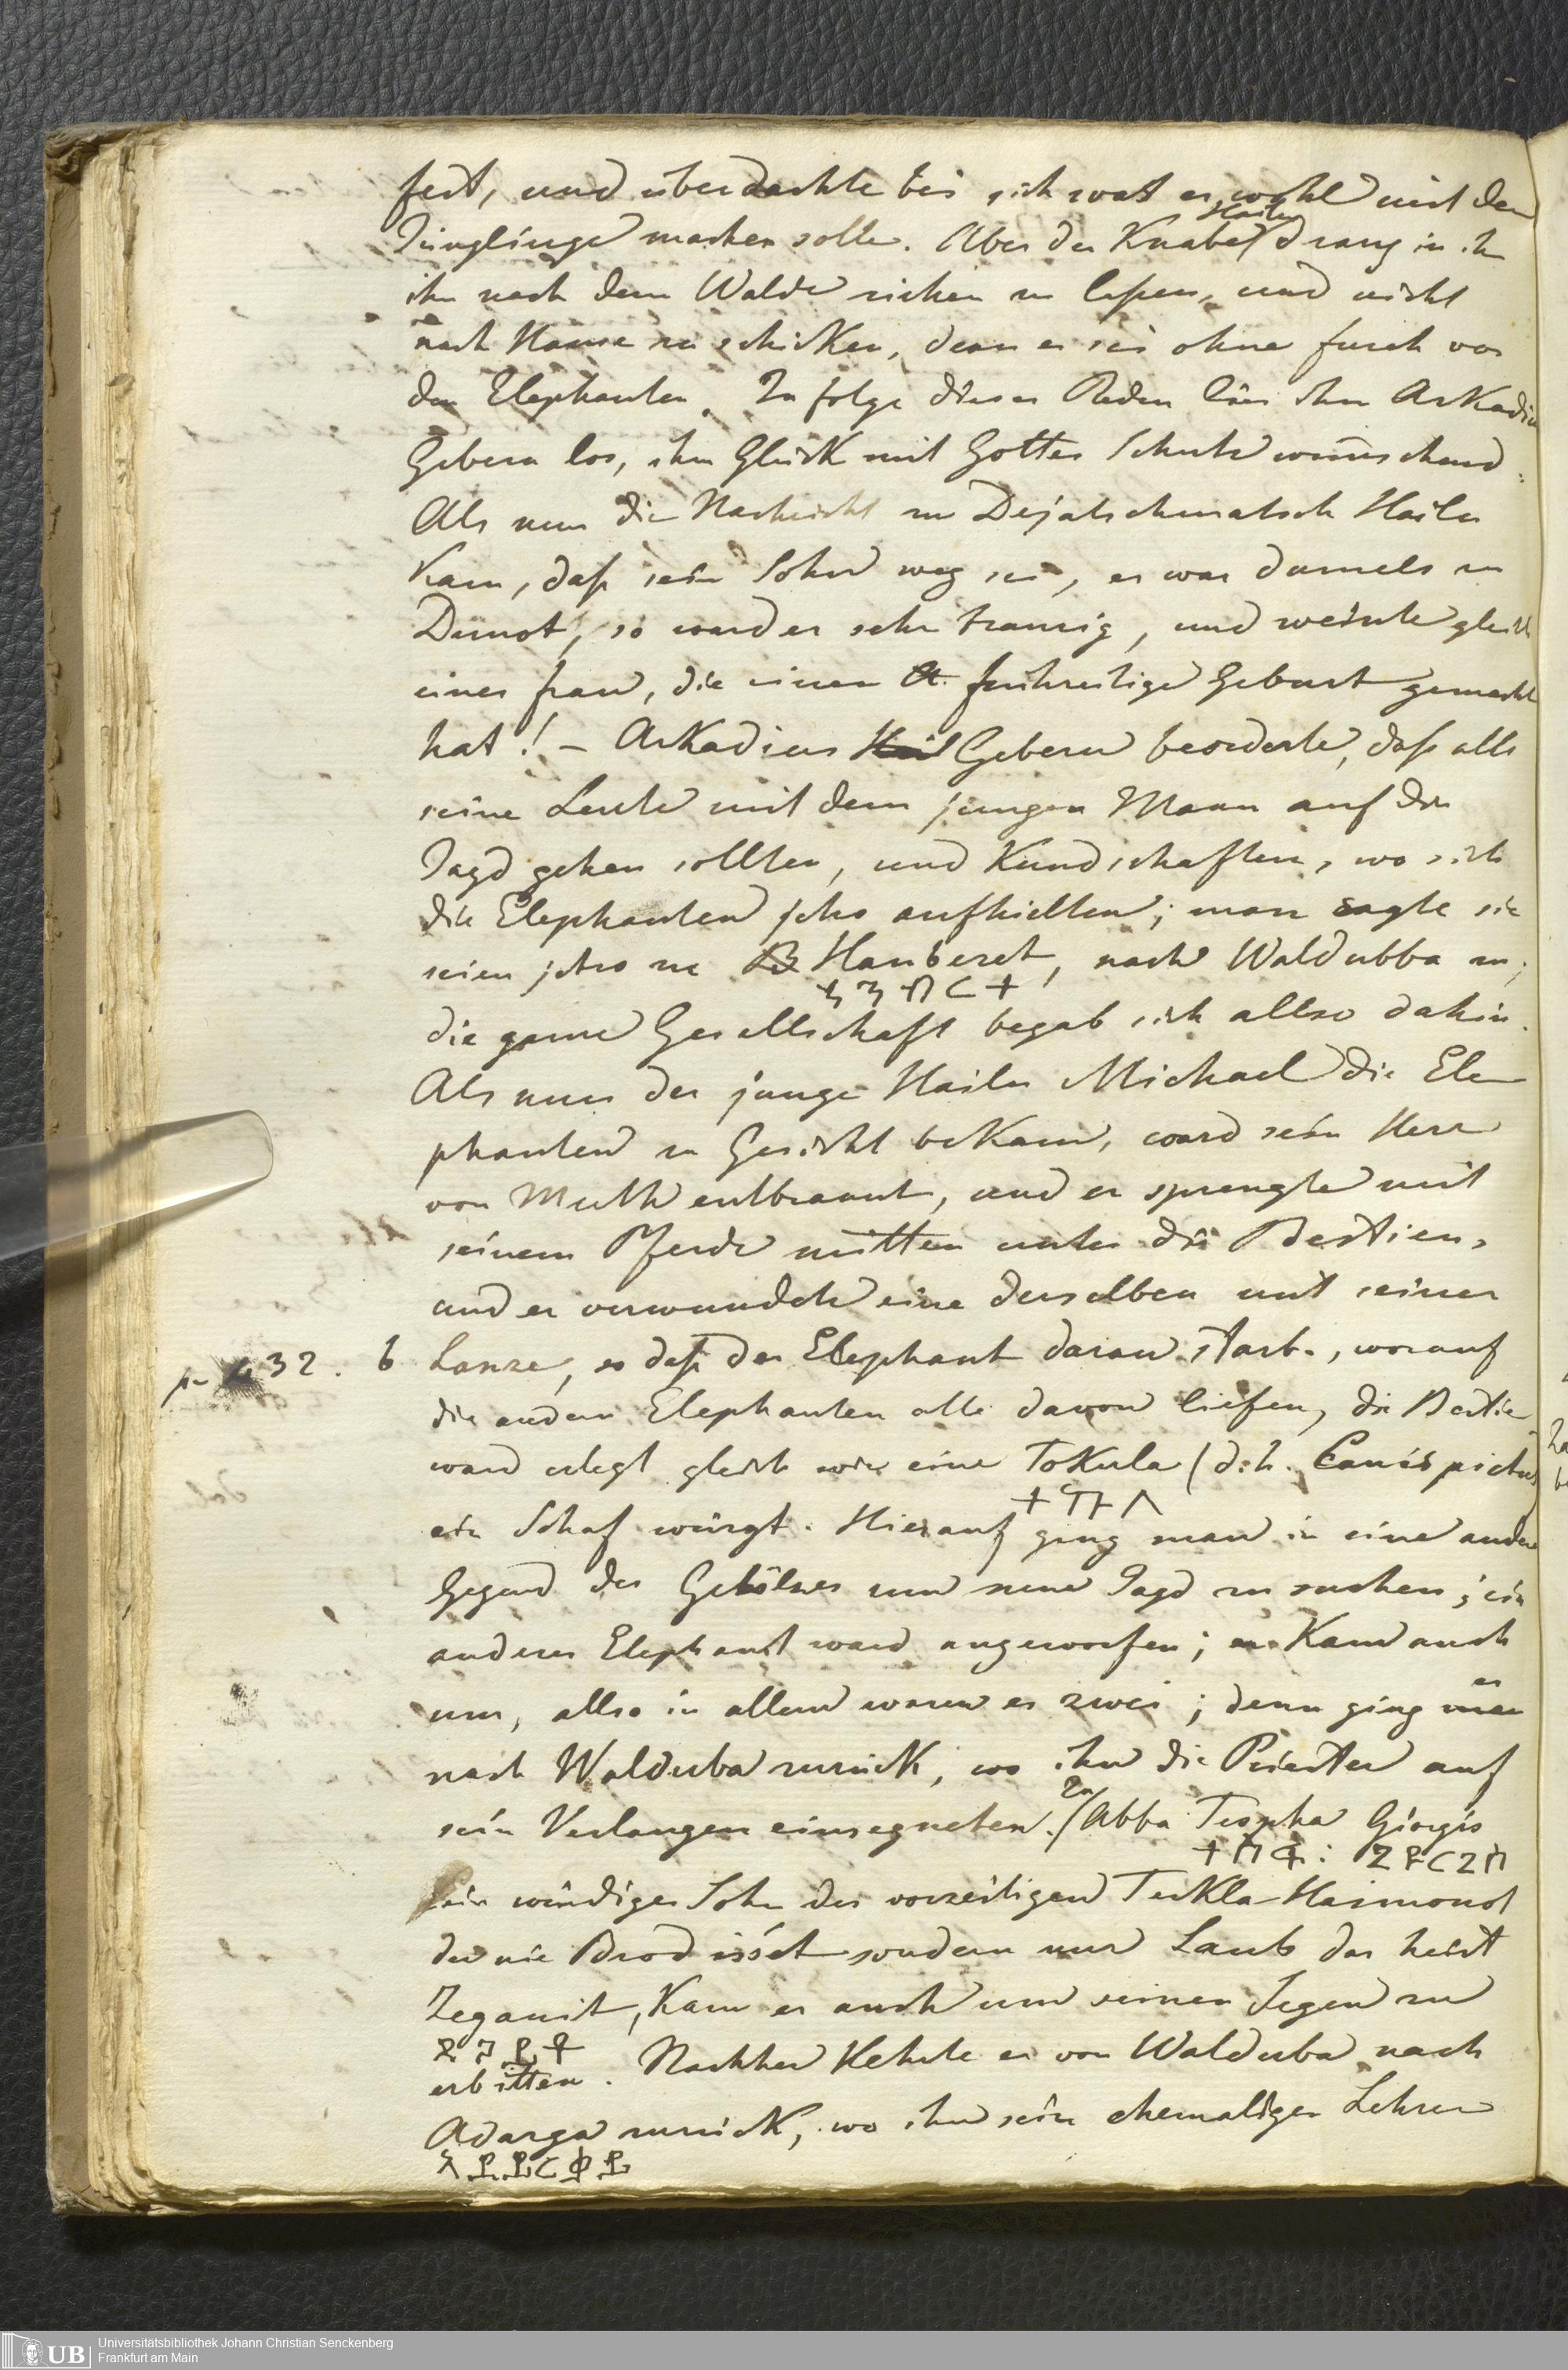 fest, und überdachte bei sich was er wohl mit dem
Hailu
Jünglinge machen solle. Aber der Knabe drang in ihn
ihn nach dem Walde ziehen zu lassen, und nicht
nach Hause zu schicken, denn er sei ohne furch vor
den Elephanten. In folge dieser Reden lies ihn Arkadius
Gebern los, ihm Glück mit Gottes Schutz wünschend.
Als nun die Nachricht zu Dejatschmatsch Hailu
kam, daß sein Sohn weg sei, er war damals in
Damot, so ward er sehr traurig, und weinte gleich
einer frau, die einen frühzeitige Geburt gemacht
hat! – Arkadius Gebern beorderte, daß alle
seine Leute mit dem jungen Mann auf die
Jagd gehen sollten, und Kundschaften, wo sich
die Elephanten jetzo aufhielten; man sagte sie
seien jetzo zu Hanberet, nach Waldubba zu;
ኃንበርተ
die ganze Gesellschaft begab sich allso dahin.
Als nun der junge Hailu Michael die Ele
phanten zu Gesicht bekam, ward sein Herz
von Muth entbrannt, und er sprengte mit
seinem Pferde mitten unter die Bestien,
und er verwundete eine derselben mit seiner
p. 432. b Lanze, so daß der Elephant daran starb, worauf
die andern Elephanten alle davon liefen, die Bestie
ward erlegt gleich wie eine Tokula (d.h. Canis pictus
ተኵላ
ein Schaf würgt. Hierauf ging man in eine andere
Gegend des Gehölzes um neue Jagd zu suchen; ein
anderer Elephant ward angeworfen; kam auch
um, allso in allem waren es zwei; denn ging er
nach Walduba zurück, wo ihn die Priester auf
sein Verlangen einsegneten. Zu Abba Tespha Giorgis
ተስፋ: ጊዮርጊስ
ein würdiger Sohn des vorzeitigen Tekla Haimonot
der nie Brod isset sondern nur Laub das heist
Zeganit, kam er auch um seinen Segen zu
erbitten. Nachher kehrte er von Walduba nach
Adarga zurück, wo ihn sein ehemaliger Lehrer
Universitätsbibliothek Johann Christian Senckenberg
Frankfurt am Main
UB